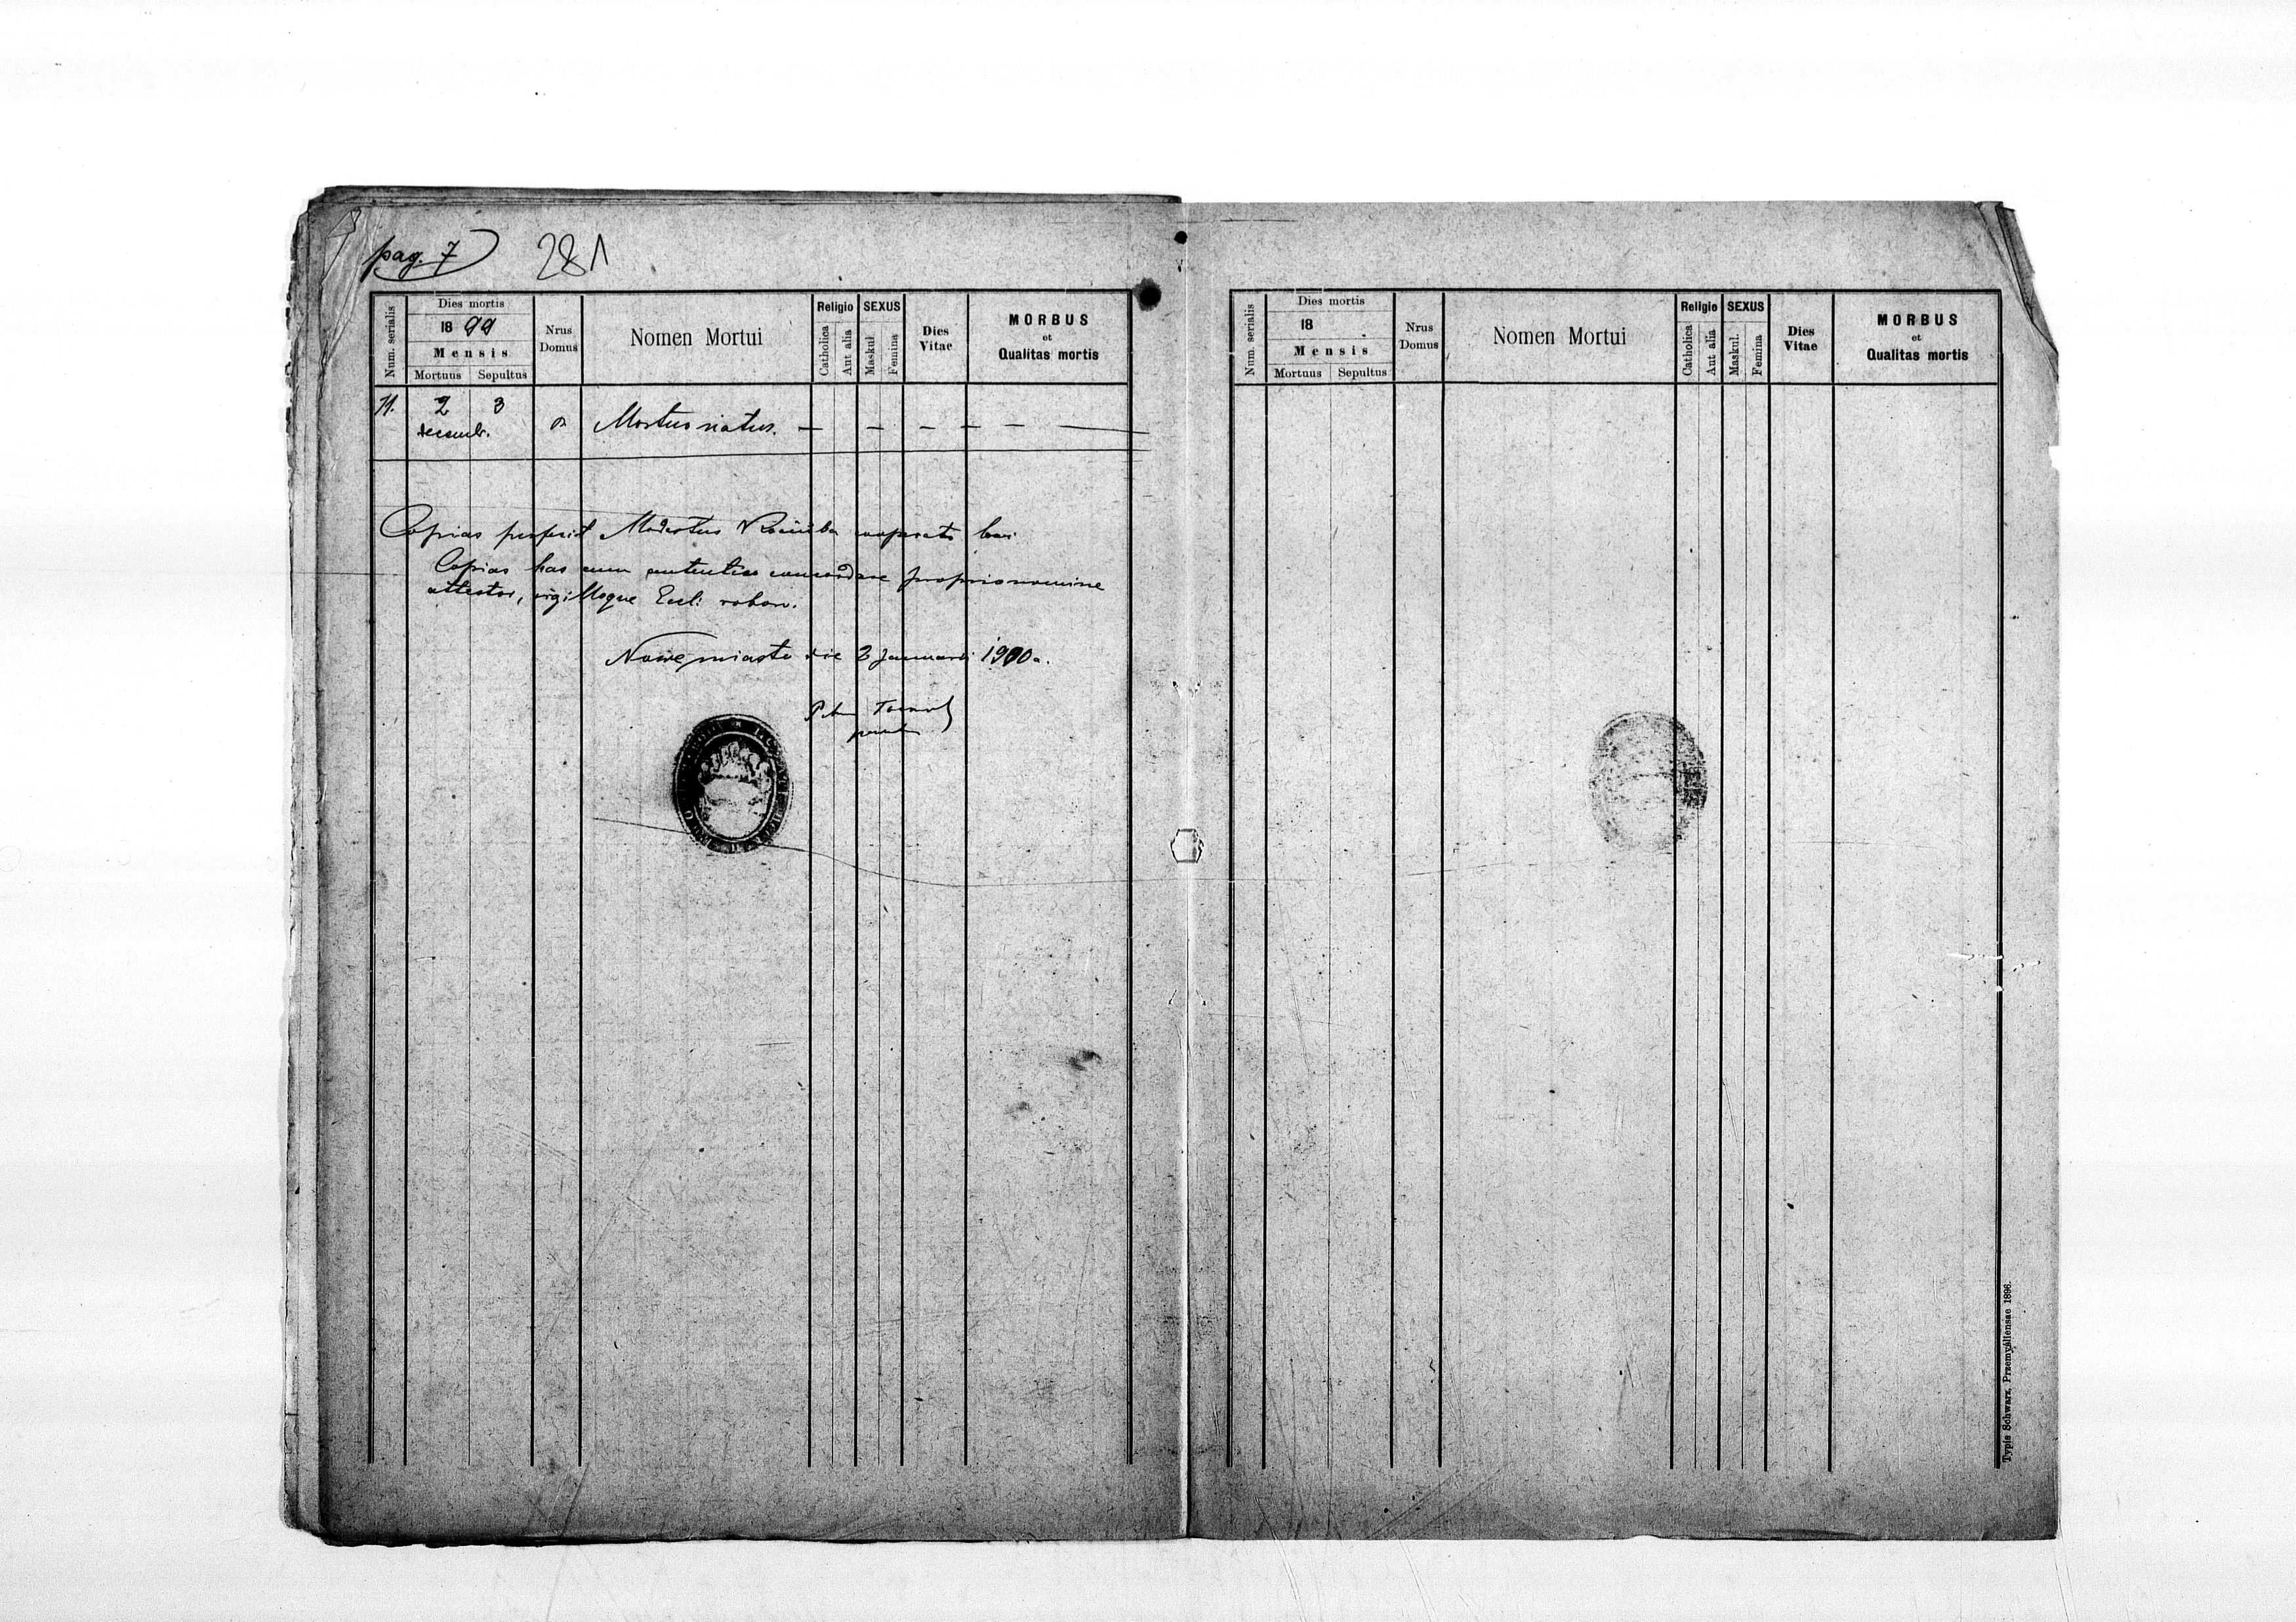 pag. 7 281
Num. serialis
Dies mortis
1899
Mensis
Mortuus Sepultus
Nrus Domus
Nomen Mortui
Religio
Catholica
Aut alia
SEXUS
Maskul.
Femina
Dies Vitae
MORBUS
et
Qualitas mortis
71. 2 3 Mortuo natus. — — — — — —
decemb.
Copias perfecit Modestus cooperator loci
Copias has cum autentico concordare proprio nomine
attestor, sigilloque Eccli: robor.
Nowemiasto die 3 Januarii 1900 a.
Num. serialis
Dies mortis
18
Mensis
Mortuus Sepultus
Nrus Domus
Nomen Mortui
Religio
Catholica
Aut alia
SEXUS
Maskul.
Femina
Dies Vitae
MORBUS
et
Qualitas mortis
Typis Schwarz, Przemyśliensae 1896.